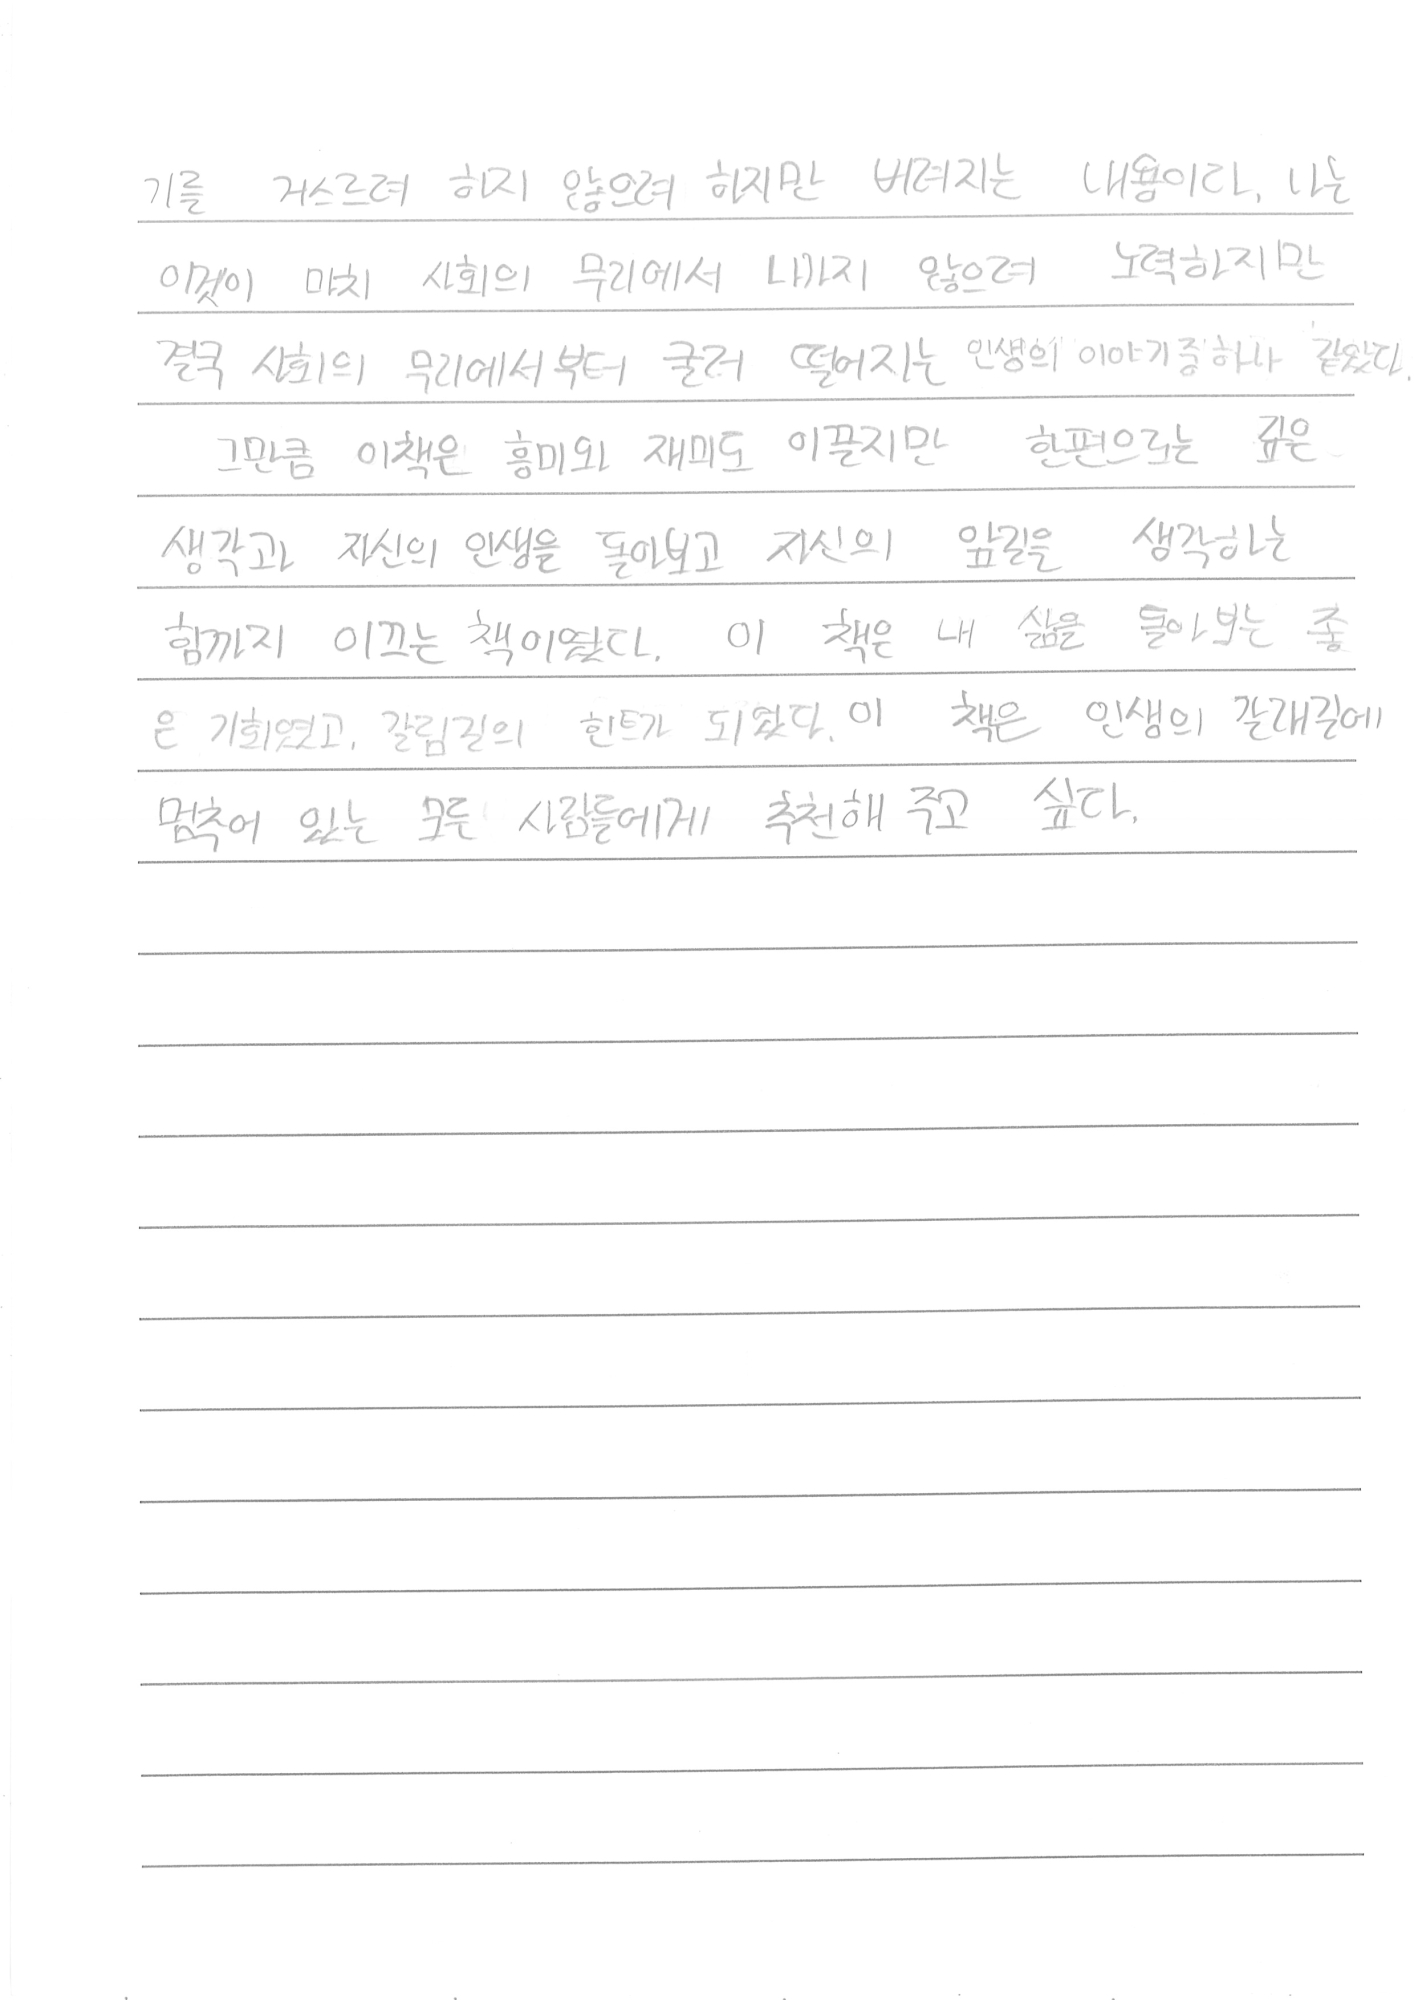 기를 거스르려 하지 않으려 하지만 버려지는 내용이라, 나는
이것이 마치 사회의 무리에서 나가지 않으려 노력하지만
결국 사회의 무리에서부터 굴러 떨어지는 인생의 이야기중 하나 같았다.
그만큼 이책은 흥미와 재미도 이끌지만 한편으로는 깊은
생각과 자신의 인생을 돌아보고 자신의 앞길을 생각하는
힘까지 이끄는 책이였다. 이 책은 내 삶을 돌아보는 좋
은 기회였고, 갈림길의 힌트가 되었다. 이 책은 인생의 갈래길에
멈추어 있는 모든 사람들에게 추천해 주고 싶다.